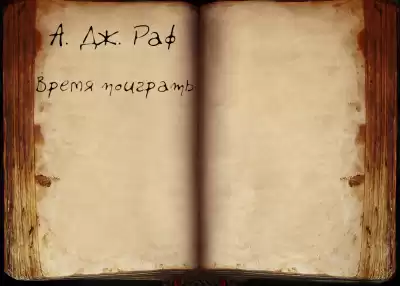 А. Дж. Раф
Время поиграть